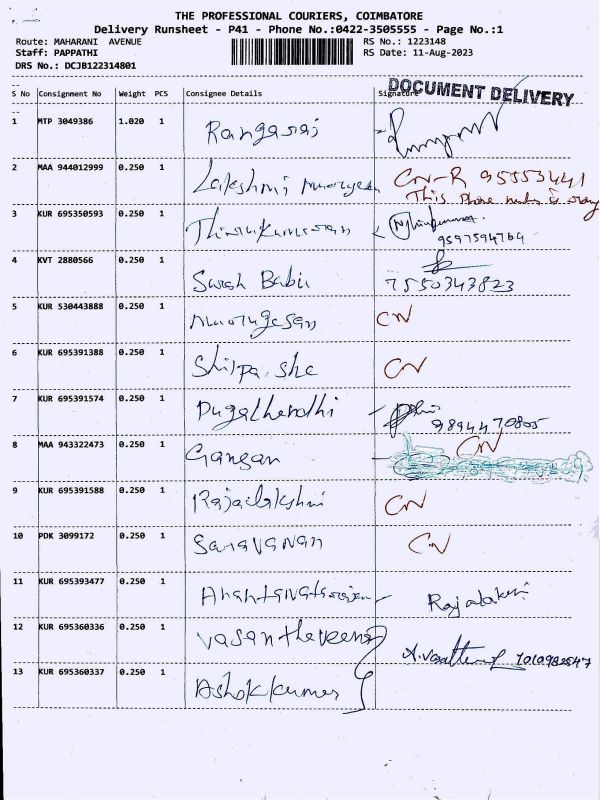 THE PROFESSIONAL COURIERS, COIMBATORE
Delivery Runsheet - P41 - Phone No.:0422-3505555 - Page No.:1
Route: MAHARANI AVENUE RS No.: 1223148
Staff: PAPPATHI RS Date: 11-Aug-2023
DRS No.: DCJB122314801
DOCUMENT DELIVERY
S No Consignment No Weight PCS Consignee Details Signature
1 MTP 3049386 1.020 1 Rangaraj
2 MAA 944012999 0.250 1 Lakshmi CN-R 95553441
This Phone number is wrong
3 KUR 695350593 0.250 1 Thirukumaran
9597594764
4 KVT 2880566 0.250 1 Suresh Babu 7550343823
5 KUR 530443888 0.250 1 Murugesan CN
6 KUR 695391388 0.250 1 Shilpa she CN
7 KUR 695391574 0.250 1 Pugalhendhi
9894470805
8 MAA 943322473 0.250 1 Gangan CN
9 KUR 695391588 0.250 1 Rajalakshmi CN
10 PDK 3099172 0.250 1 Saravanan CN
11 KUR 695393477 0.250 1
12 KUR 695360336 0.250 1 Vasantheveena
13 KUR 695360337 0.250 1 Ashokkumar